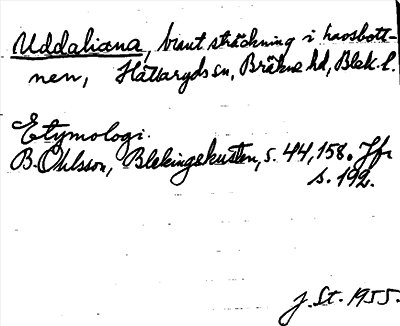 Uddaliana, brant sträckning i havsbott-
nen, Hällaryds sn, Bräkne hd, Blek. l.
Etymologi.
B. Ohlsson, Blekingekusten, s. 44, 158. Jfr
s. 192.
J. St. 1955.